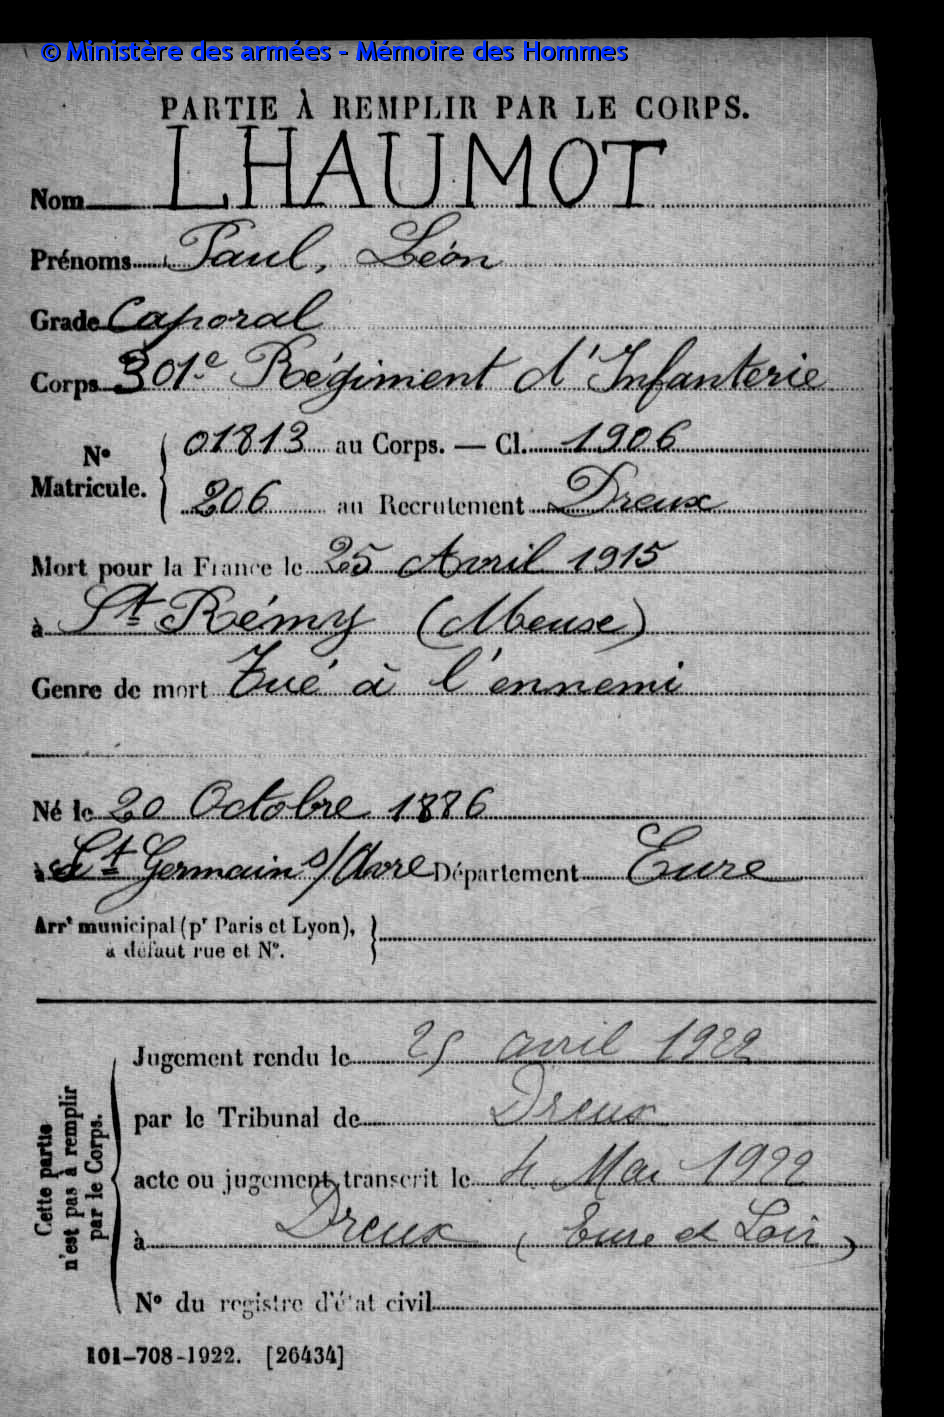 © Ministère des armées - Mémoire des Hommes
PARTIE À REMPLIR PAR LE CORPS.
Nom LHAUMOT
Prénoms Paul, Léon
Grade Caporal
Corps 301e Régiment d'Infanterie
N° Matricule. { 01813 au Corps. — Cl. 1906
206 au Recrutement Dreux
Mort pour la France le 25 Avril 1915
à St Rémy (Meuse)
Genre de mort Tué à l'ennemi
Né le 20 Octobre 1886
à St Germain s/Avre Département Eure
Arrt municipal (pr Paris et Lyon), }
à défaut rue et N°.
Cette partie n'est pas à remplir par le Corps.
Jugement rendu le 25 avril 1922
par le Tribunal de Dreux
acte ou jugement transcrit le 4 Mai 1922
à Dreux (Eure et Loir)
N° du registre d'état civil
101-708-1922. [26434]